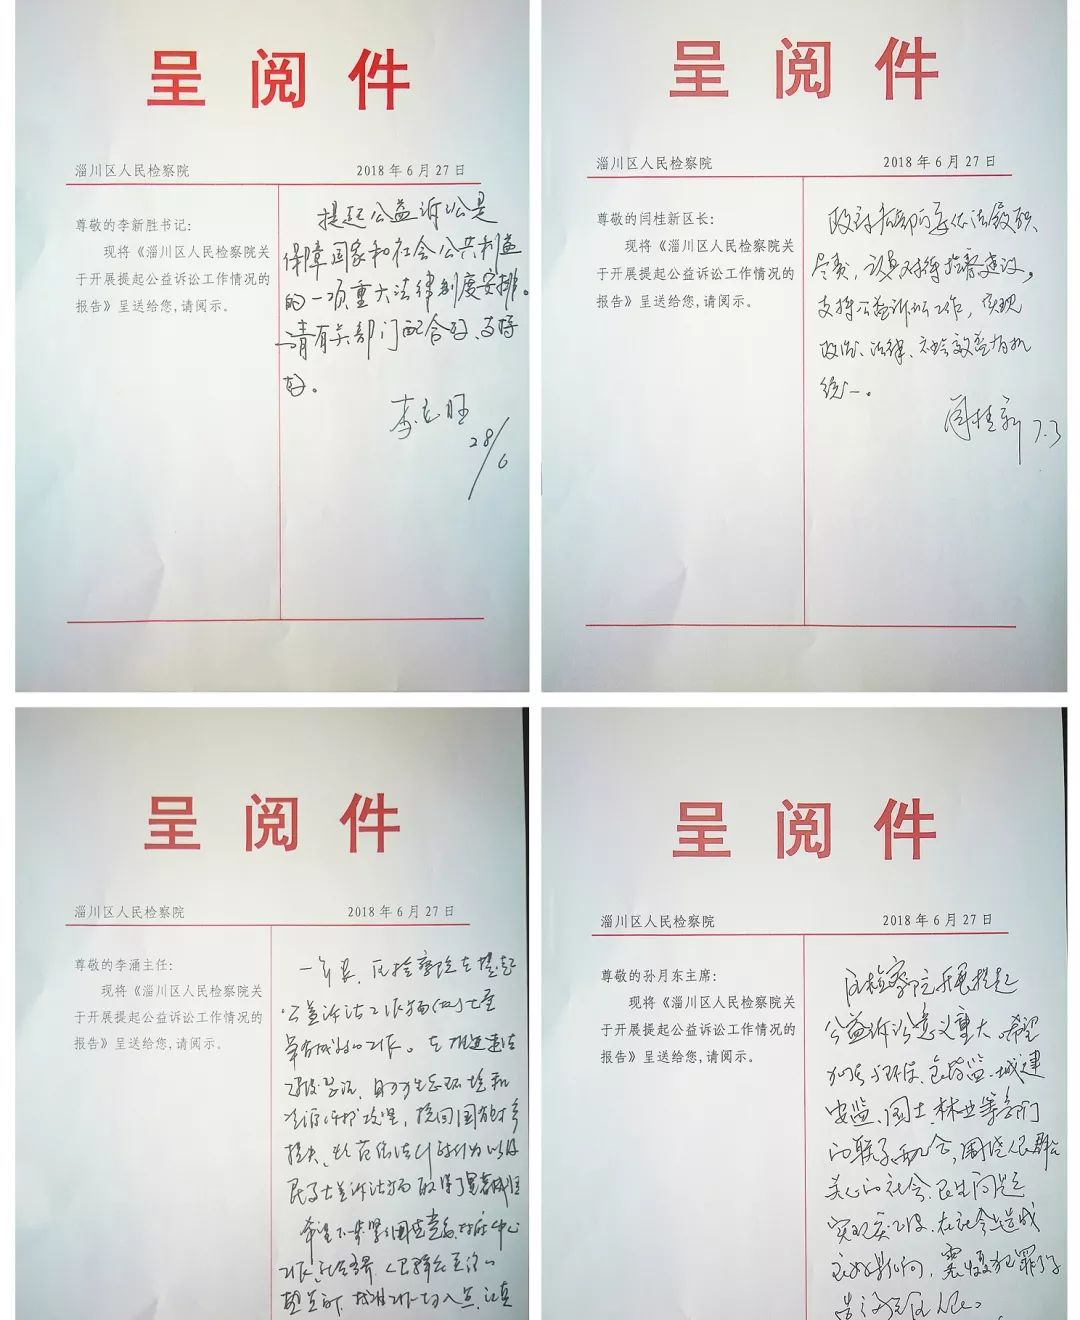 呈阅件
淄川区人民检察院 2018年6月27日
尊敬的李新胜书记:
现将《淄川区人民检察院关
于开展提起公益诉讼工作情况的
报告》呈送给您,请阅示。
提起公益诉讼是
保障国家和社会公共利益
的一项重大法律制度安排。
请有关部门配合好、支持
好。
28/6
呈阅件
淄川区人民检察院 2018年6月27日
尊敬的闫桂新区长:
现将《淄川区人民检察院关
于开展提起公益诉讼工作情况的
报告》呈送给您,请阅示。
依法履职、
尽责,认真对待检察建议,
支持公益诉讼工作,实现
政治、法律、社会效益有机
统一。
闫桂新 7.3
呈阅件
淄川区人民检察院 2018年6月27日
尊敬的李涌主任:
现将《淄川区人民检察院关
于开展提起公益诉讼工作情况的
报告》呈送给您,请阅示。
一年来,区检察院在提起
公益诉讼工作方面
工作。在推进
生态环境和
资源保护 挽回国有财产
损失、 以及
民事公益诉讼方面取得了显著成绩
希望下一步紧紧围绕党委、政府中心
工作、 人民群众
找准工作切入点,认真
呈阅件
淄川区人民检察院 2018年6月27日
尊敬的孙月东主席:
现将《淄川区人民检察院关
于开展提起公益诉讼工作情况的
报告》呈送给您,请阅示。
区检察院开展提起
公益诉讼意义重大。希望
加强与环保、食药监、城建
安监、国土、林业等部门
的联系配合,围绕人民群众
关心的社会、民生问题
在社会上造成
良好影响,震慑犯罪分子